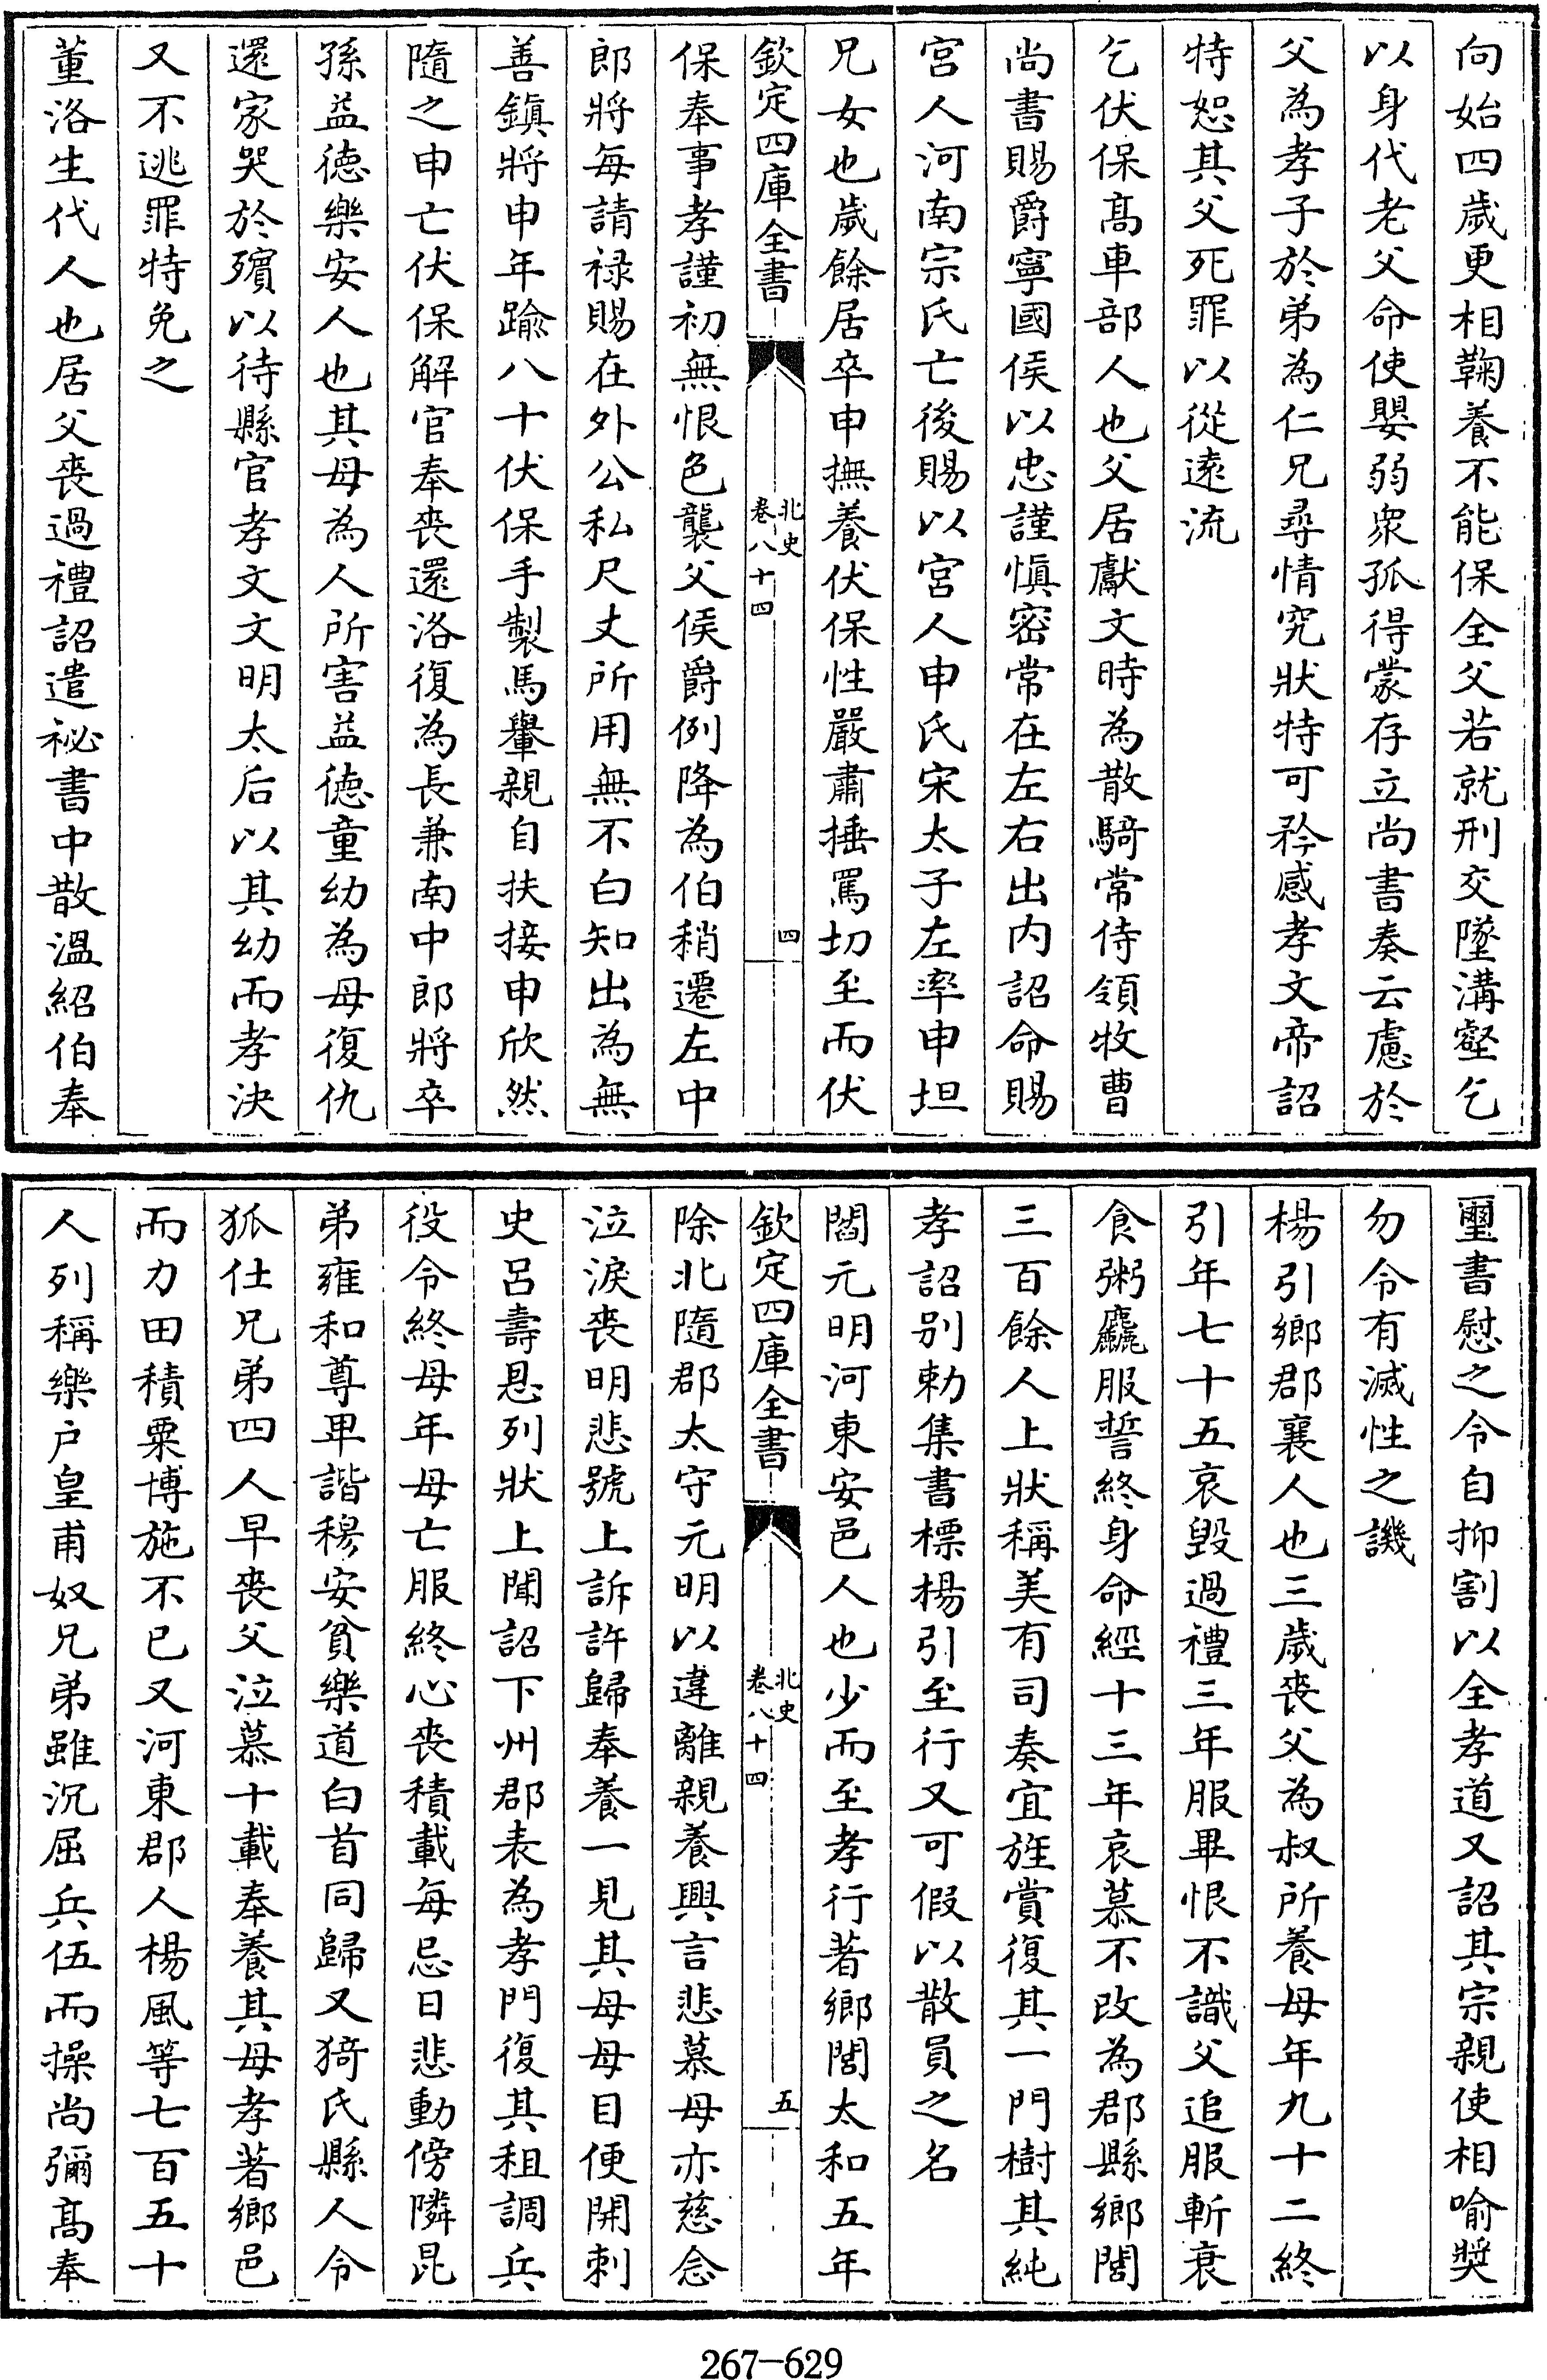 向始四歲更相鞠養不能保全父若就刑交墜溝壑乞
以身代老父命使嬰弱衆孤得蒙存立尚書奏云慮於
父為孝子於弟為仁兄尋情究狀特可矜感孝文帝詔
特恕其父死罪以從逺流
乞伏保髙車部人也父居獻文時為散騎常侍領牧曹
尚書賜爵寧國侯以忠謹慎密常在左右出内詔命賜
宫人河南宗氏亡後賜以宫人申氏宋太子左率申坦
兄女也歲餘居卒申撫養伏保性嚴肅捶罵切至而伏
欽定四庫全書
北史
卷八十四
四
保奉事孝謹初無恨色襲父侯爵例降為伯稍遷左中
郎將每請禄賜在外公私尺丈所用無不白知出為無
善鎮將申年踰八十伏保手製馬轝親自扶接申欣然
隨之申亡伏保解官奉喪還洛復為長兼南中郎將卒
孫益徳樂安人也其母為人所害益徳童幼為母復仇
還家哭於殯以待縣官孝文文明太后以其幼而孝決
又不逃罪特免之
董洛生代人也居父喪過禮詔遣祕書中散溫紹伯奉
璽書慰之令自抑割以全孝道又詔其宗親使相喻奬
勿令有滅性之譏
楊引鄉郡襄人也三歲喪父為叔所養母年九十二終
引年七十五哀毀過禮三年服畢恨不識父追服斬衰
食粥麤服誓終身命經十三年哀慕不改為郡縣鄉閭
三百餘人上狀稱美有司奏宜旌賞復其一門樹其純
孝詔别勅集書標楊引至行又可假以散員之名
閻元明河東安邑人也少而至孝行著鄉閭太和五年
欽定四庫全書
北史
卷八十四
五
除北隨郡太守元明以違離親養興言悲慕母亦慈念
泣淚喪明悲號上訴許歸奉養一見其母母目便開刺
史呂壽恩列狀上聞詔下州郡表為孝門復其租調兵
役令終母年母亡服終心喪積載每忌日悲動傍隣昆
弟雍和尊卑諧穆安貧樂道白首同歸又猗氏縣人令
狐仕兄弟四人早喪父泣慕十載奉養其母孝著鄉邑
而力田積粟博施不已又河東郡人楊風等七百五十
人列稱樂户皇甫奴兄弟雖沉屈兵伍而操尚彌髙奉
267-629